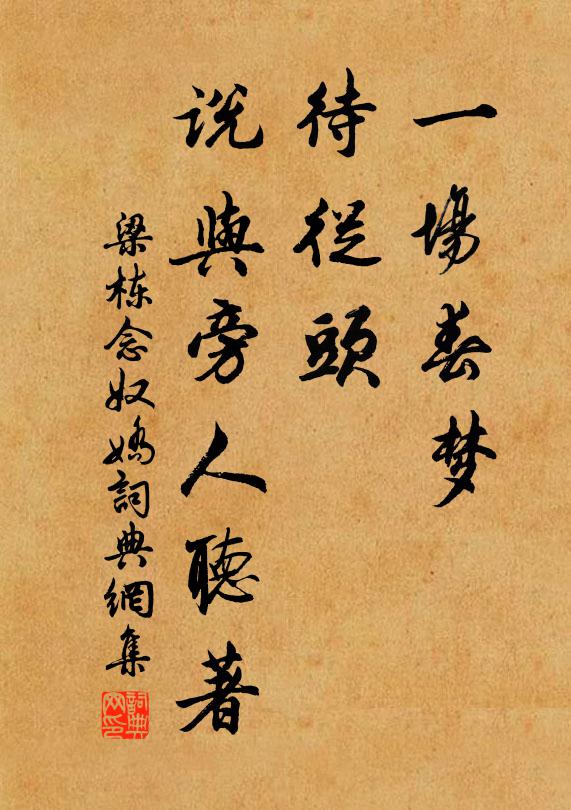 一場春梦
待從頭
説與旁人聽著
梁栋念奴嬌詞典網集
詞典网印